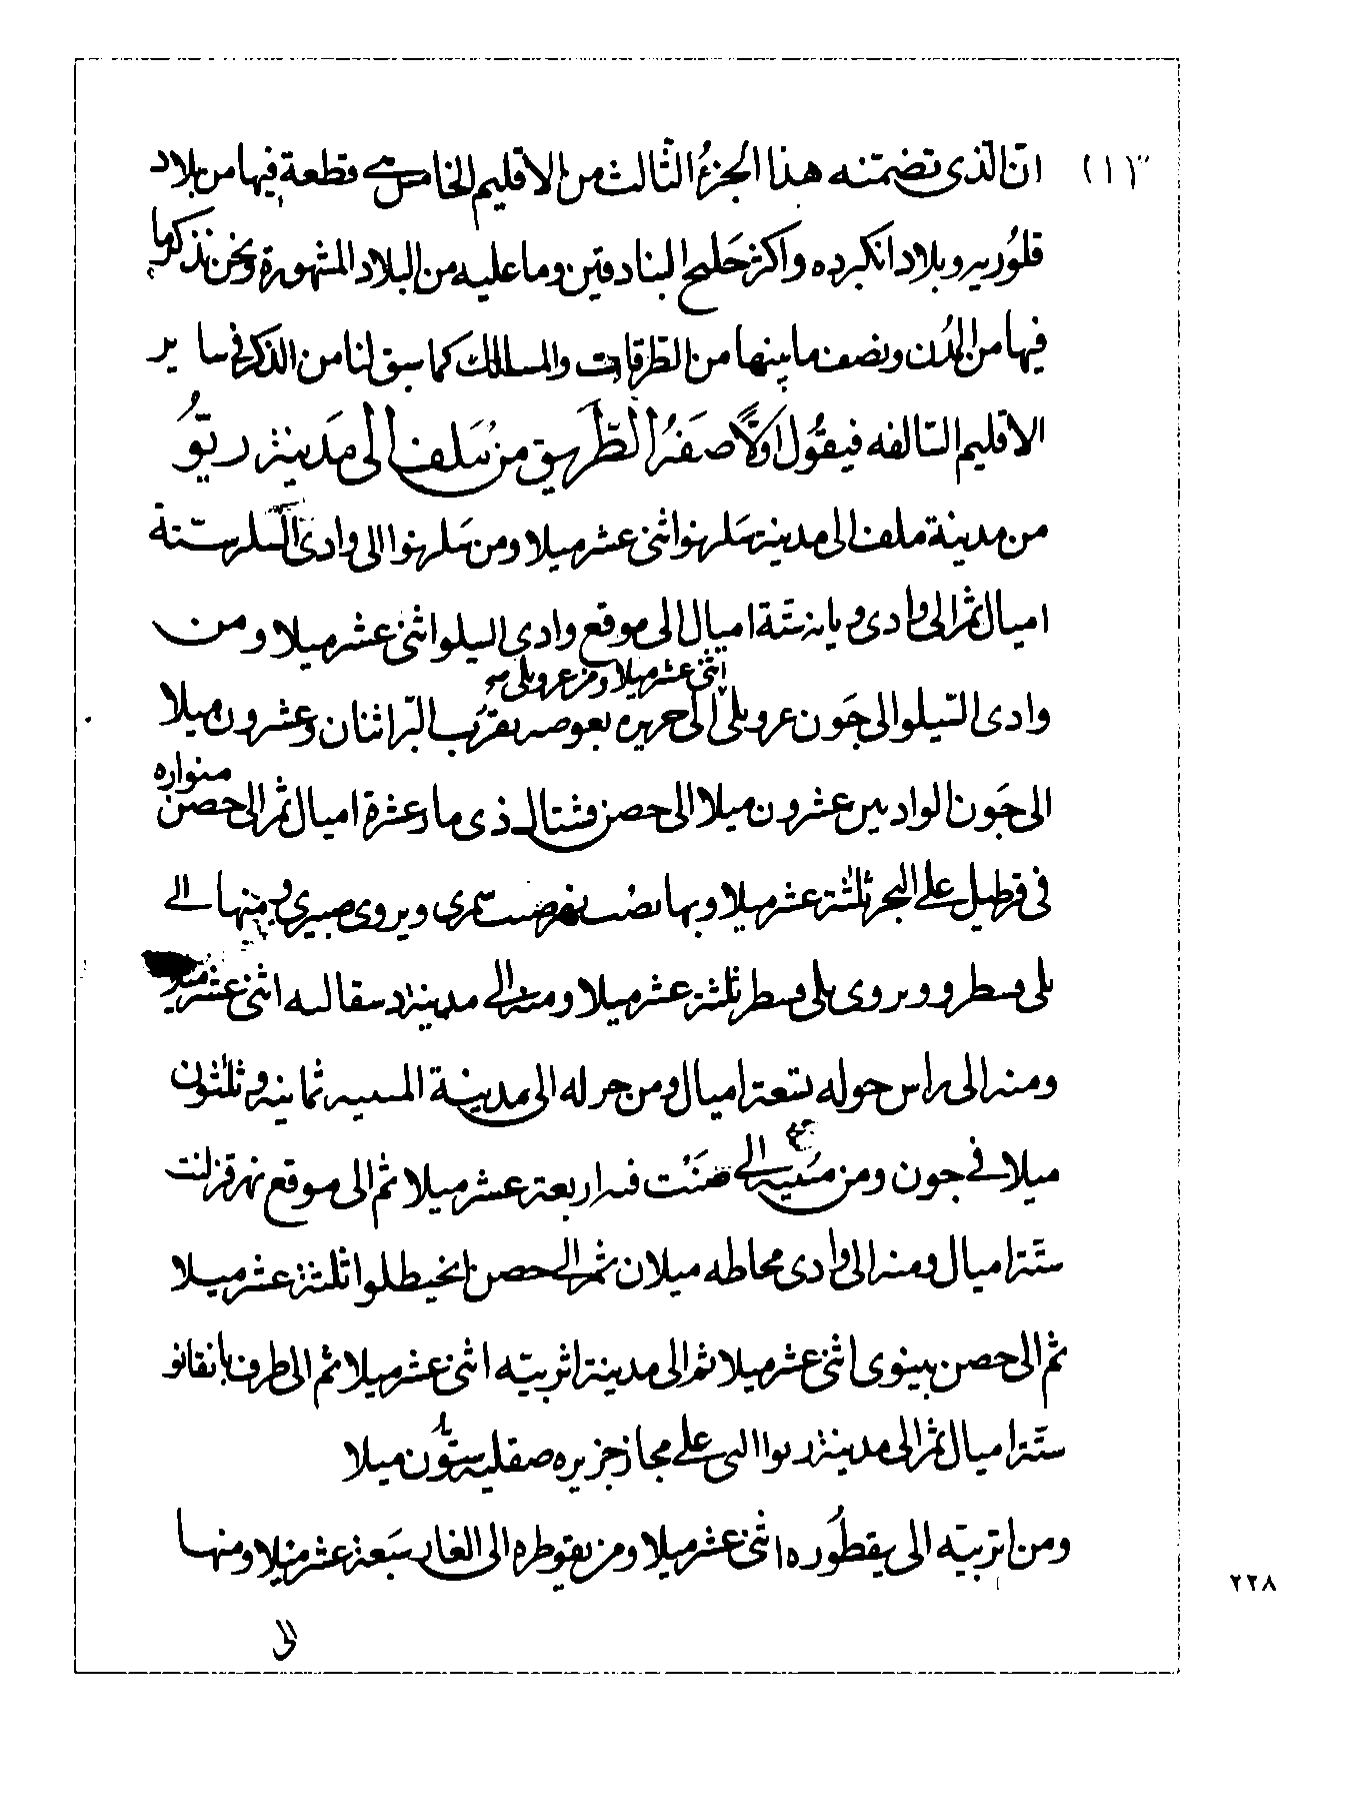 (١) انّ الّذى تضمّنه هذا الجزءُ الثّالث من الاقليم الخامس قطعة فيها من بلاد
قلُوريه وبلاد انكبرده واكثر خَليج البنادقين وما عليه من البلاد المشهورة ونحن نذكر ما
فيها من المدُن ونصف ما بينها من الطرقات والمسالك كما سبق لنا من الذكر فى ساير
الاقليم السّالفه فيقُول اوّلًا صفَةُ الطّريق من مَلف الى مَدينة ريّوُ
من مدينة ملف الى مدينة سَلرنوا اثنى عشر ميلا ومن سَلرنوا الى وادى السلر ستة
اميال ثمّ الى وادى ستّة اميال الى موقع وادى السيلوا اثنى عشر ميلا ومن
وادى السّيلوا الى جَون غروبلى الى جزيره بقُرب البّر اثنان وعشرون ميلا
اثنى عشر ميلا ومن غروبلى
الى جَون الواديين عشرون ميلا الى حصن ذى ماد عشرة اميال ثمّ الى حصن
منواره
فى قرطيل على البحر ثلثة عشر ميلا وبها ويروى منها الى
بلى قسطرو ويروى بلى قسطر ثلثة عشر ميلا ومنه الى مدينة اثنى عشر ميلا
ومنه الى راس حوله تسعة اميال ومن حوله الى مدينة المسيه ثمانية وثلثون
ميلا فى جون ومن مسيه الى اربعة عشر ميلا ثم الى موقع نهر
ستّة اميال ومنه الى وادى مخاطه ميلان ثمّ الى حصن ثلثة عشر ميلا
ثم الى حصن بينوى اثنى عشر ميلا ثم الى مدينة اتربيّه اثنى عشر ميلا ثم الى طرف
ستّة اميال ثمّ الى مدينة ريوا التى على مجاز جزيره صقليه ستُّون ميلا
ومن اتربيّه الى يقطُوره اثنى عشر ميلا ومن يقوطره الى الغار سَبعة عشر ميلا ومنها
الى
٢٢٨